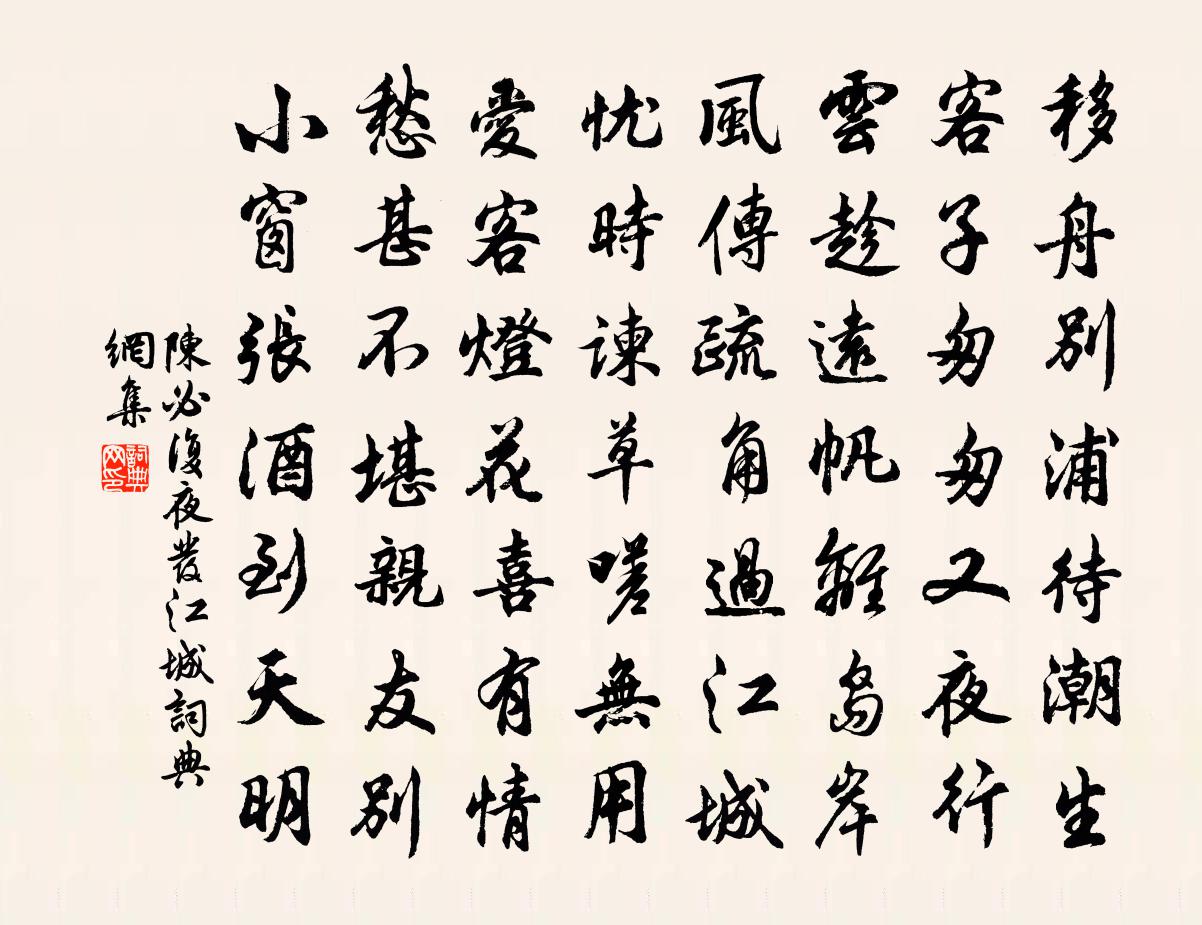 移舟別浦待潮生
客子匆匆又夜行
雲趁遠帆離岛岸
風傳疏角過江城
忧時諫草嗟無用
愛客燈花喜有情
愁甚不堪親友別
小窗張酒到天明
陳必復夜發江城詞典
網集
詞典
网印